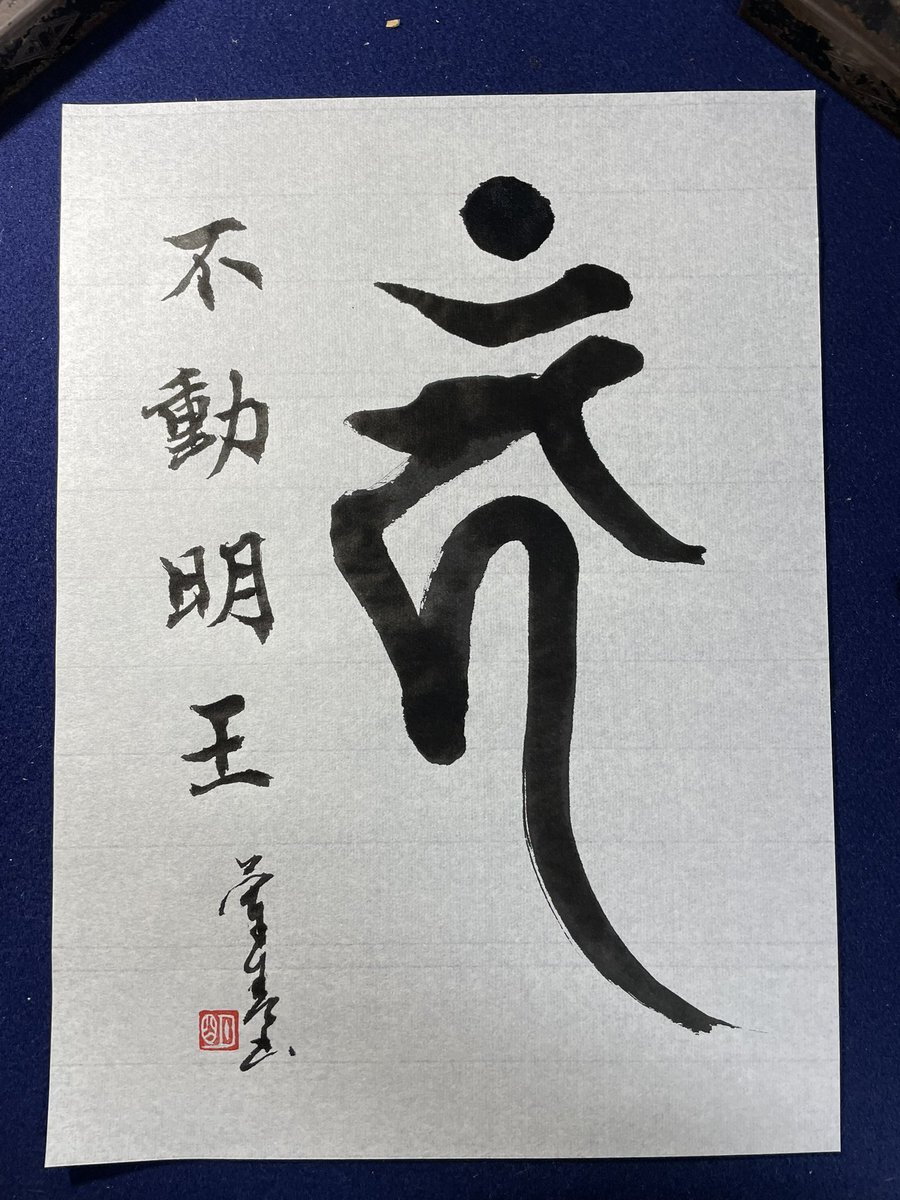 𑖮𑖯𑖼
不動明王